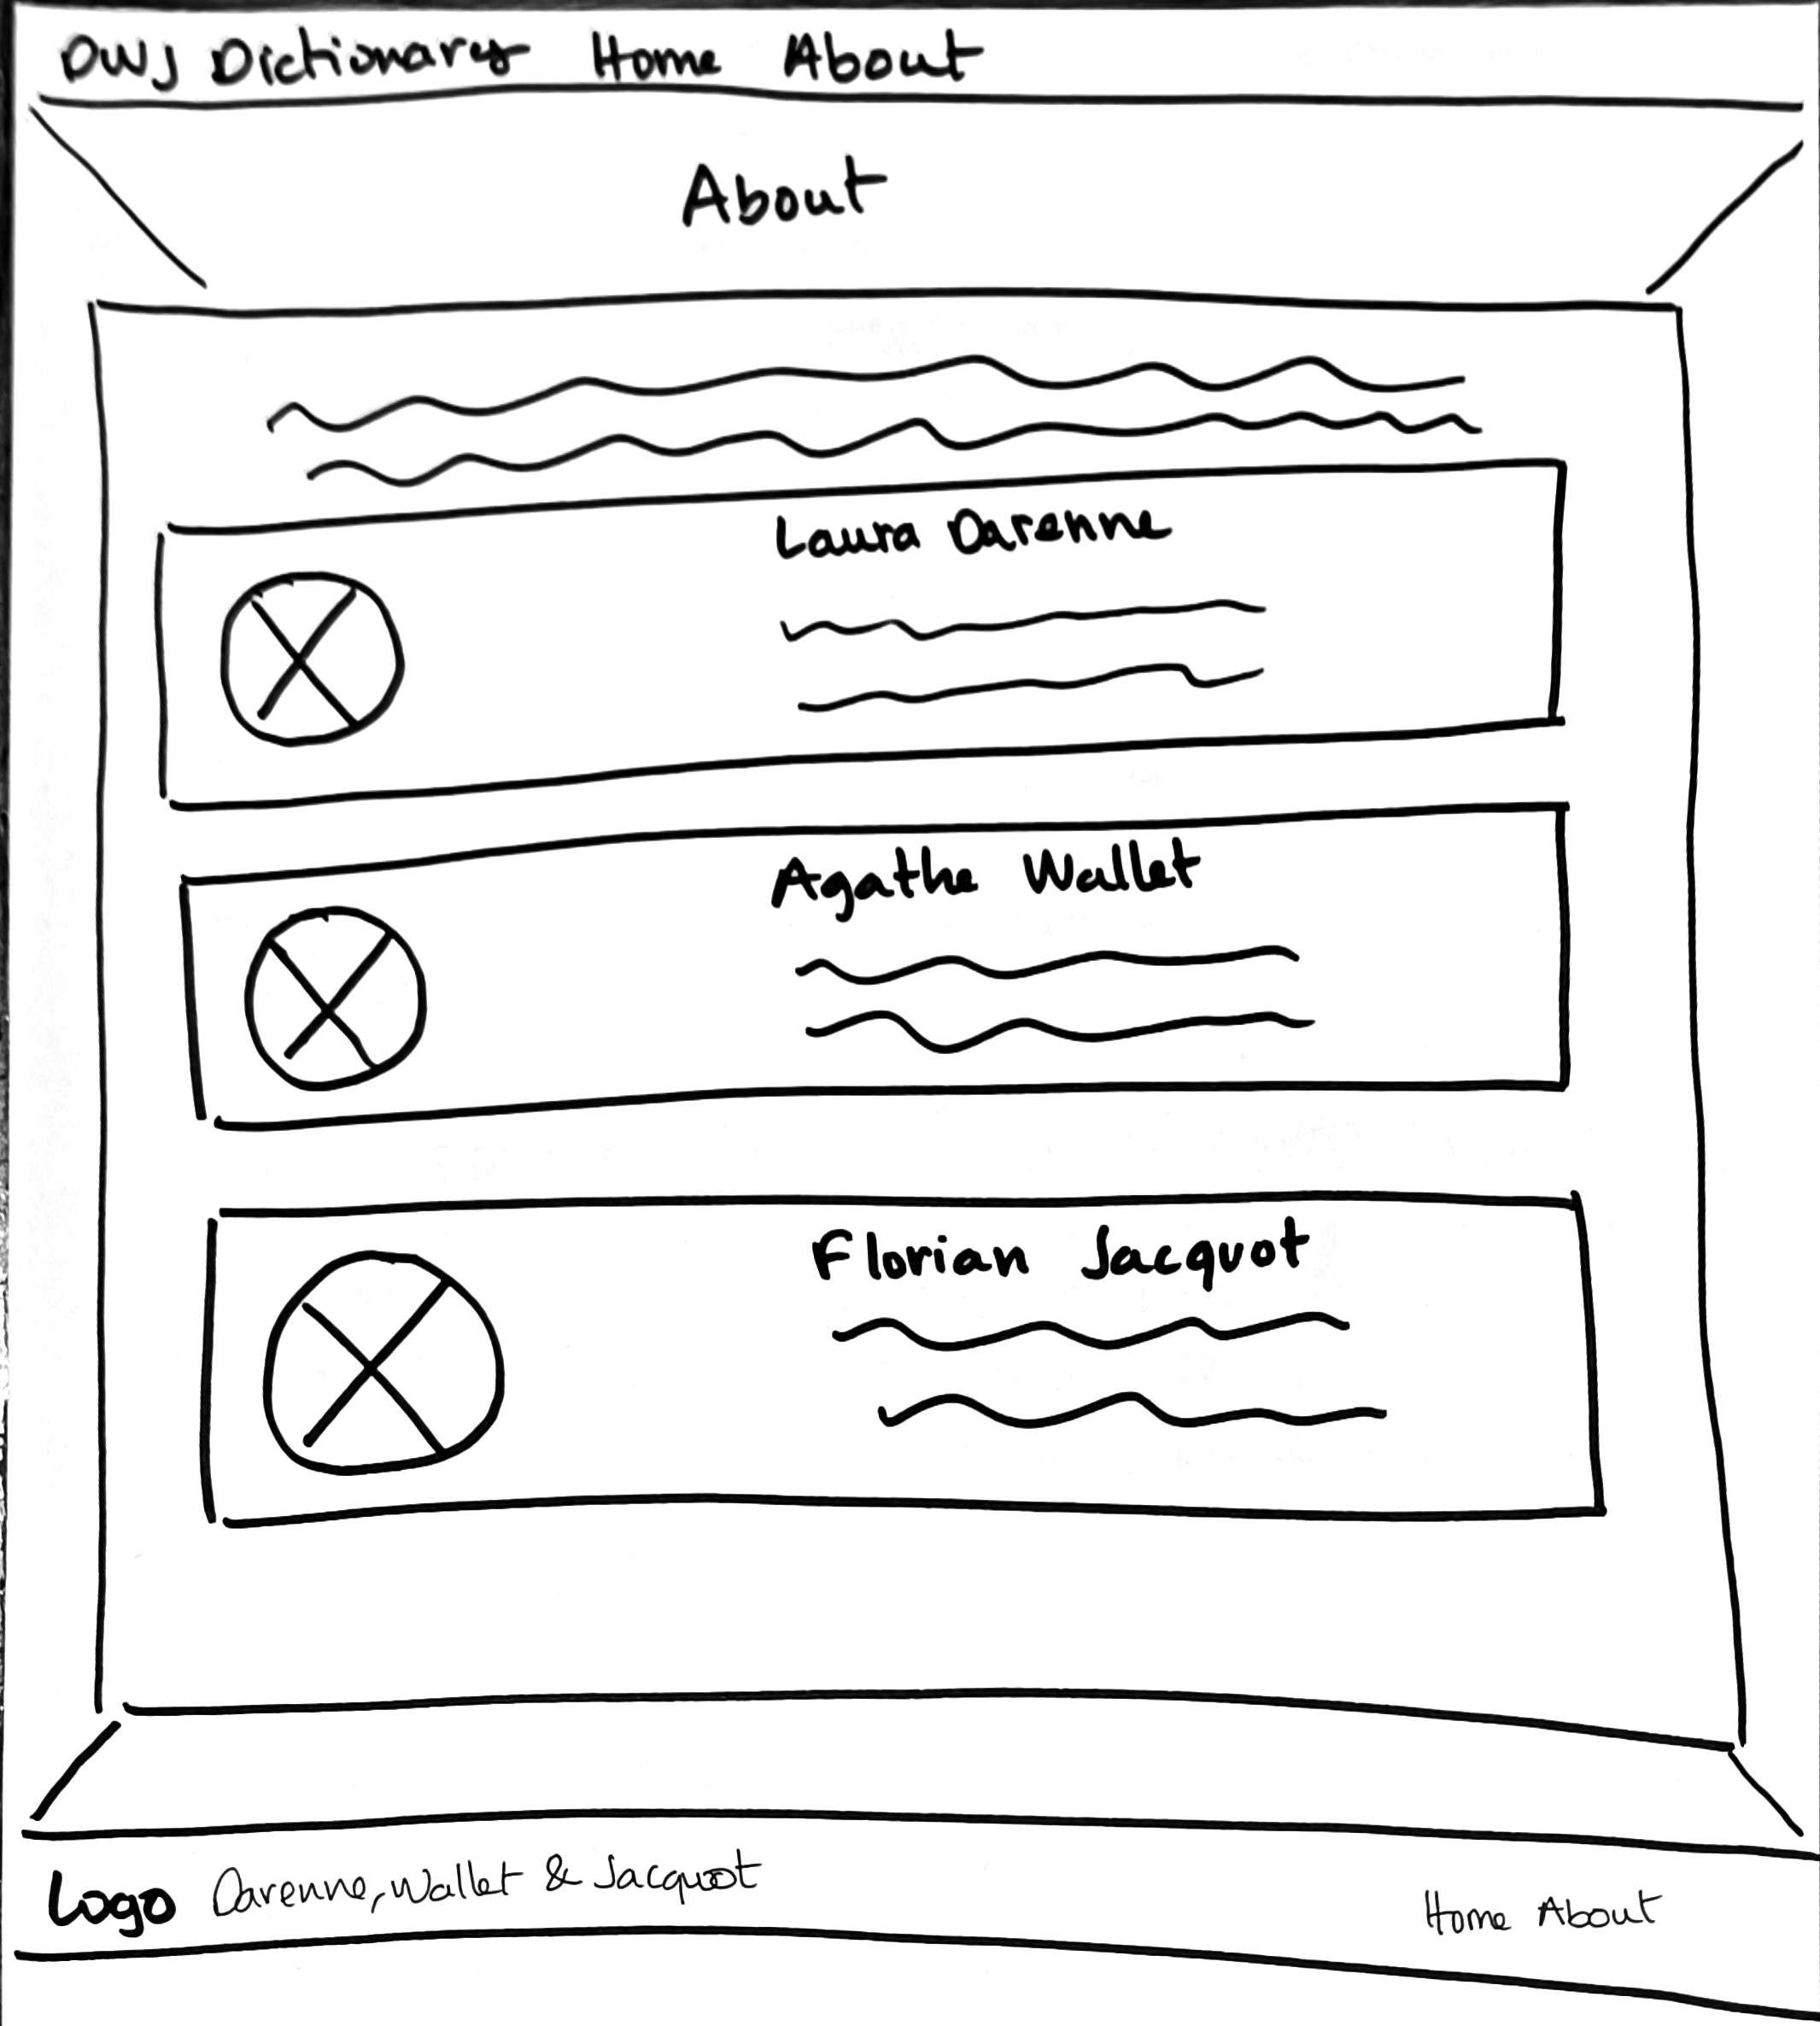 DWJ Dictionary Home About
About
Laura Darenne
Agathe Wallet
Florian Jacquot
Logo Darenne, Wallet & Jacquot
Home About